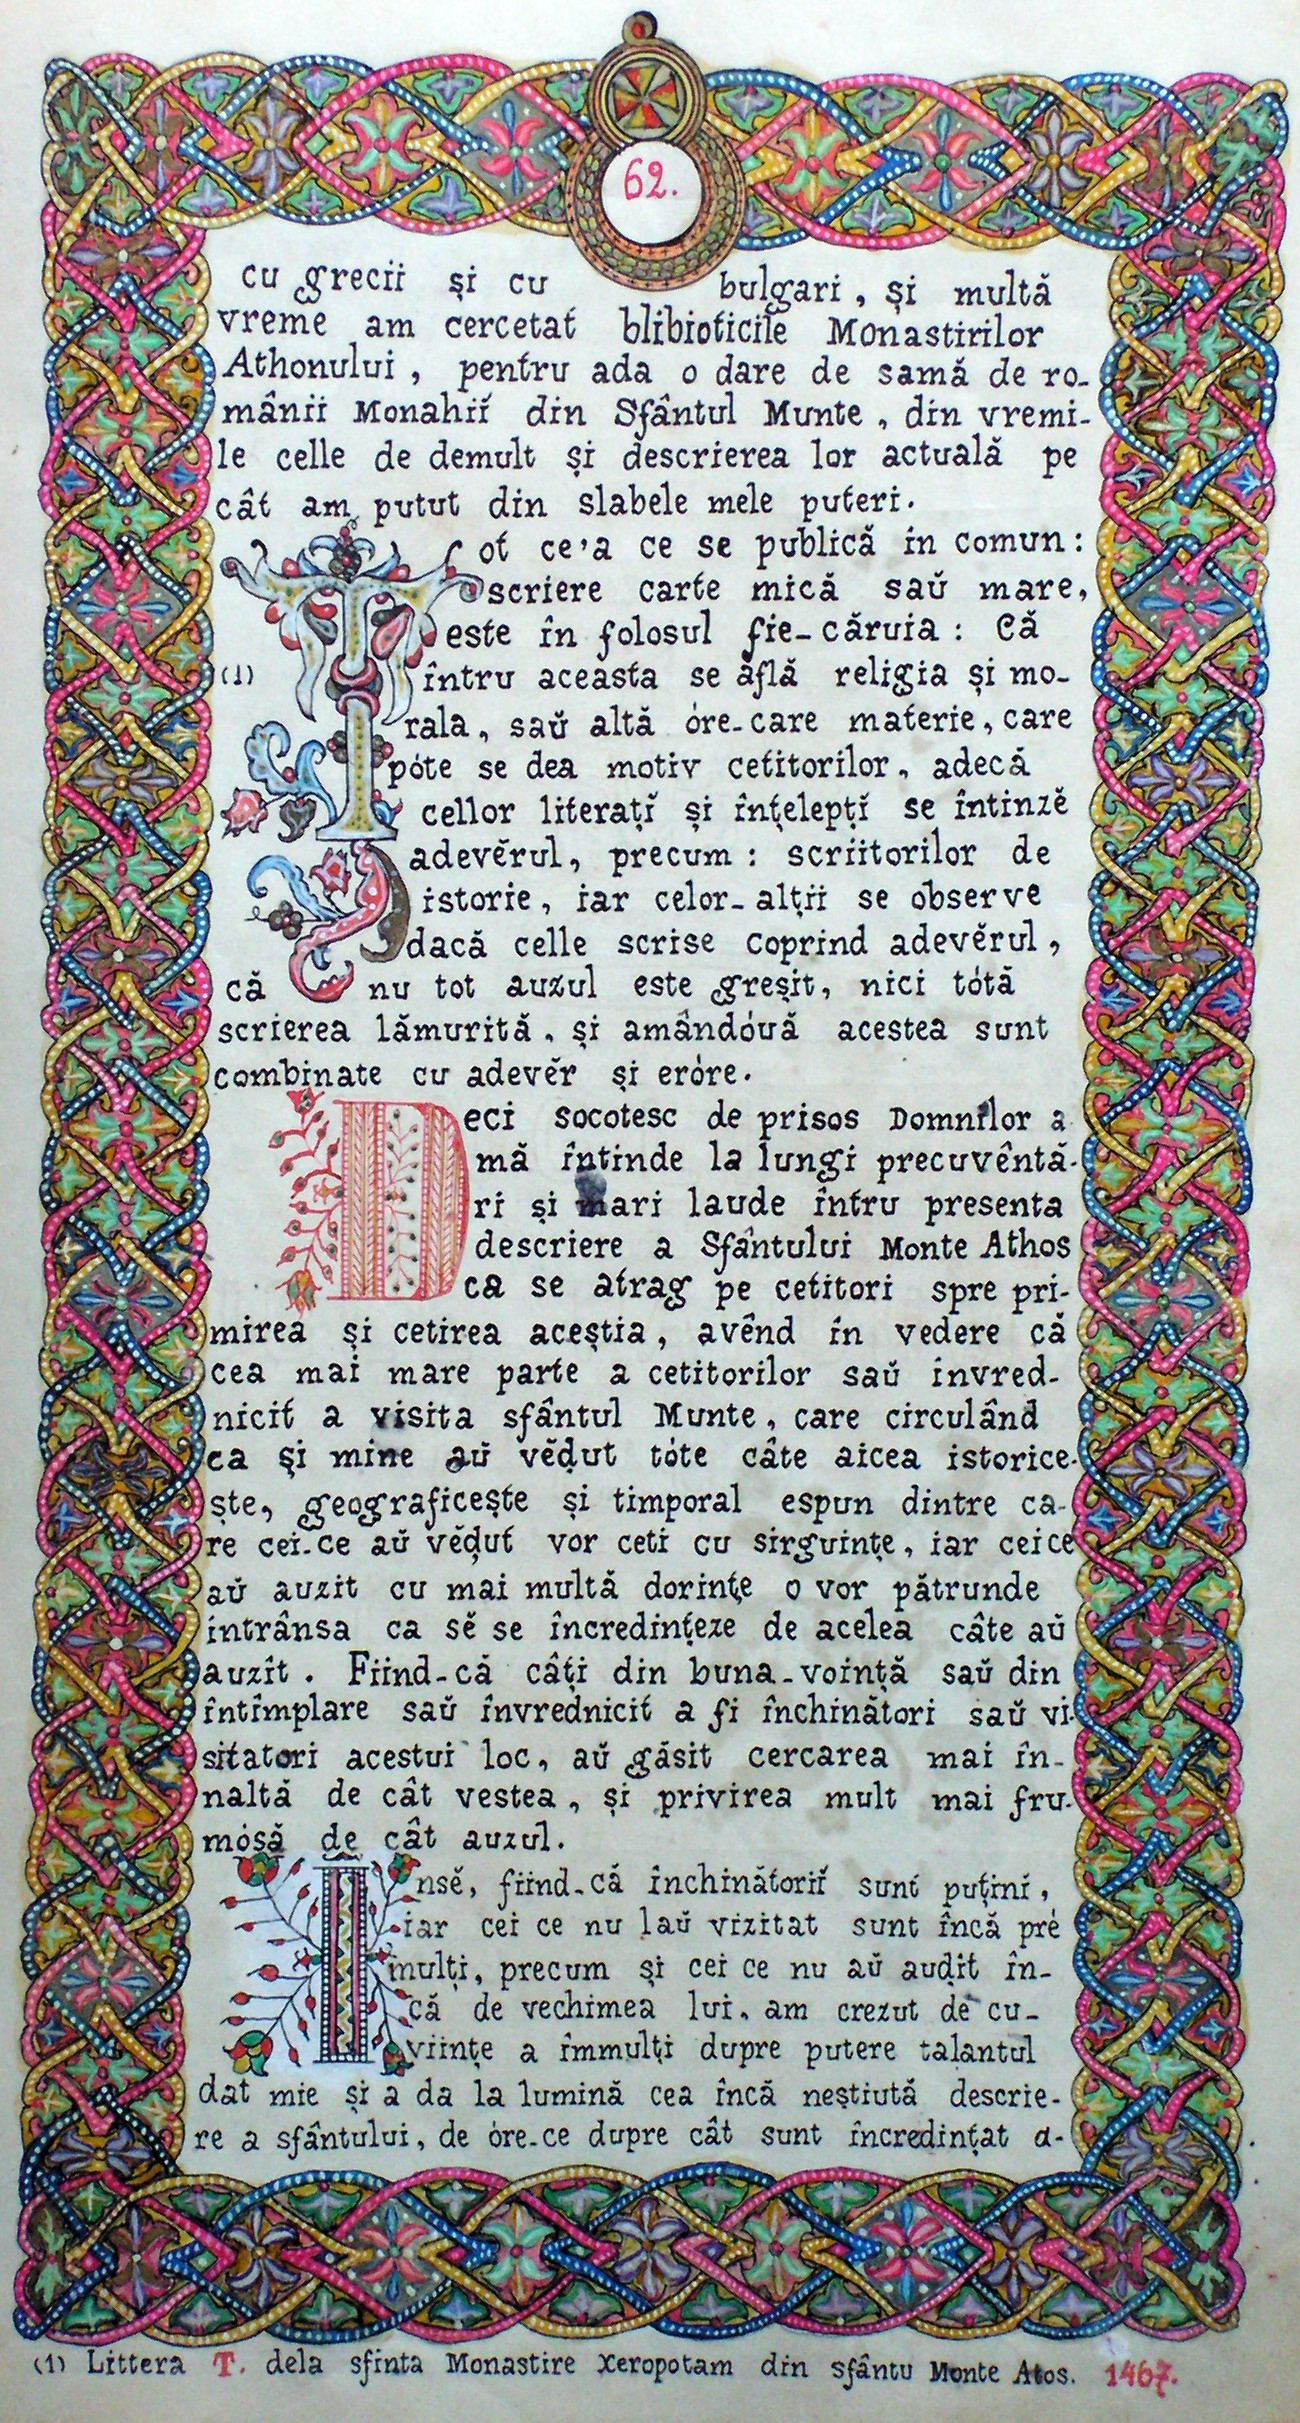 62.
cu grecii și cu bulgari, și multă
vreme am cercetat blibioticile Monastirilor
Athonului, pentru ada o dare de samă de ro-
mânii Monahiĭ din Sfântul Munte, din vremi-
le celle de demult și descrierea lor actuală pe
cât am putut din slabele mele puteri.
Tot ce'a ce se publică in comun:
scriere carte mică saŭ mare,
este în folosul fie-căruia: Că
(1) întru aceasta se află religia și mo-
rala, saŭ altă óre-care materie, care
póte se dea motiv cetitorilor, adecă
cellor literațĭ și înțelepțĭ se întinzĕ
adevĕrul, precum: scriitorilor de
istorie, iar celor-alții se observe
dacă celle scrise coprind adevĕrul,
că nu tot auzul este greșit, nici tótă
scrierea lămurită, și amândóuă acestea sunt
combinate cu adevĕr și eróre.
Deci socotesc de prisos Domnilor a
mă întinde la lungi precuvêntă-
ri și mari laude întru presenta
descriere a Sfântului Monte Athos
ca se atrag pe cetitori spre pri-
mirea și cetirea aceștia, avênd în vedere că
cea mai mare parte a cetitorilor saŭ invred-
nicit a visita sfântul Munte, care circulând
ca și mine aŭ vĕḑut tóte câte aicea istorice-
ște, geograficește și timporal espun dintre ca-
re cei-ce aŭ vĕḑut vor ceti cu sirguințe, iar ceice
aŭ auzit cu mai multă dorințe o vor pătrunde
intrânsa ca sĕ se încredințeze de acelea câte aŭ
auzît. Fiind-că câți din buna-voință saŭ din
întîmplare saŭ învrednicit a fi închinători saŭ vi-
sitatori acestui loc, aŭ găsit cercarea mai în-
naltă de cât vestea, și privirea mult mai fru-
mósă de cât auzul.
Insĕ, fiind-că închinătoriĭ sunt puțini,
iar cei ce nu laŭ vizitat sunt încă pré
mulți, precum și cei ce nu aŭ audit în-
că de vechimea lui, am crezut de cu-
viințe a îmmulți dupre putere talantul
dat mie și a da la lumină cea încă neștiută descrie-
re a sfântului, de óre-ce dupre cât sunt încredințat a-
(1) Littera T. dela sfinta Monastire Xeropotam din sfântu Monte Atos. 1467.